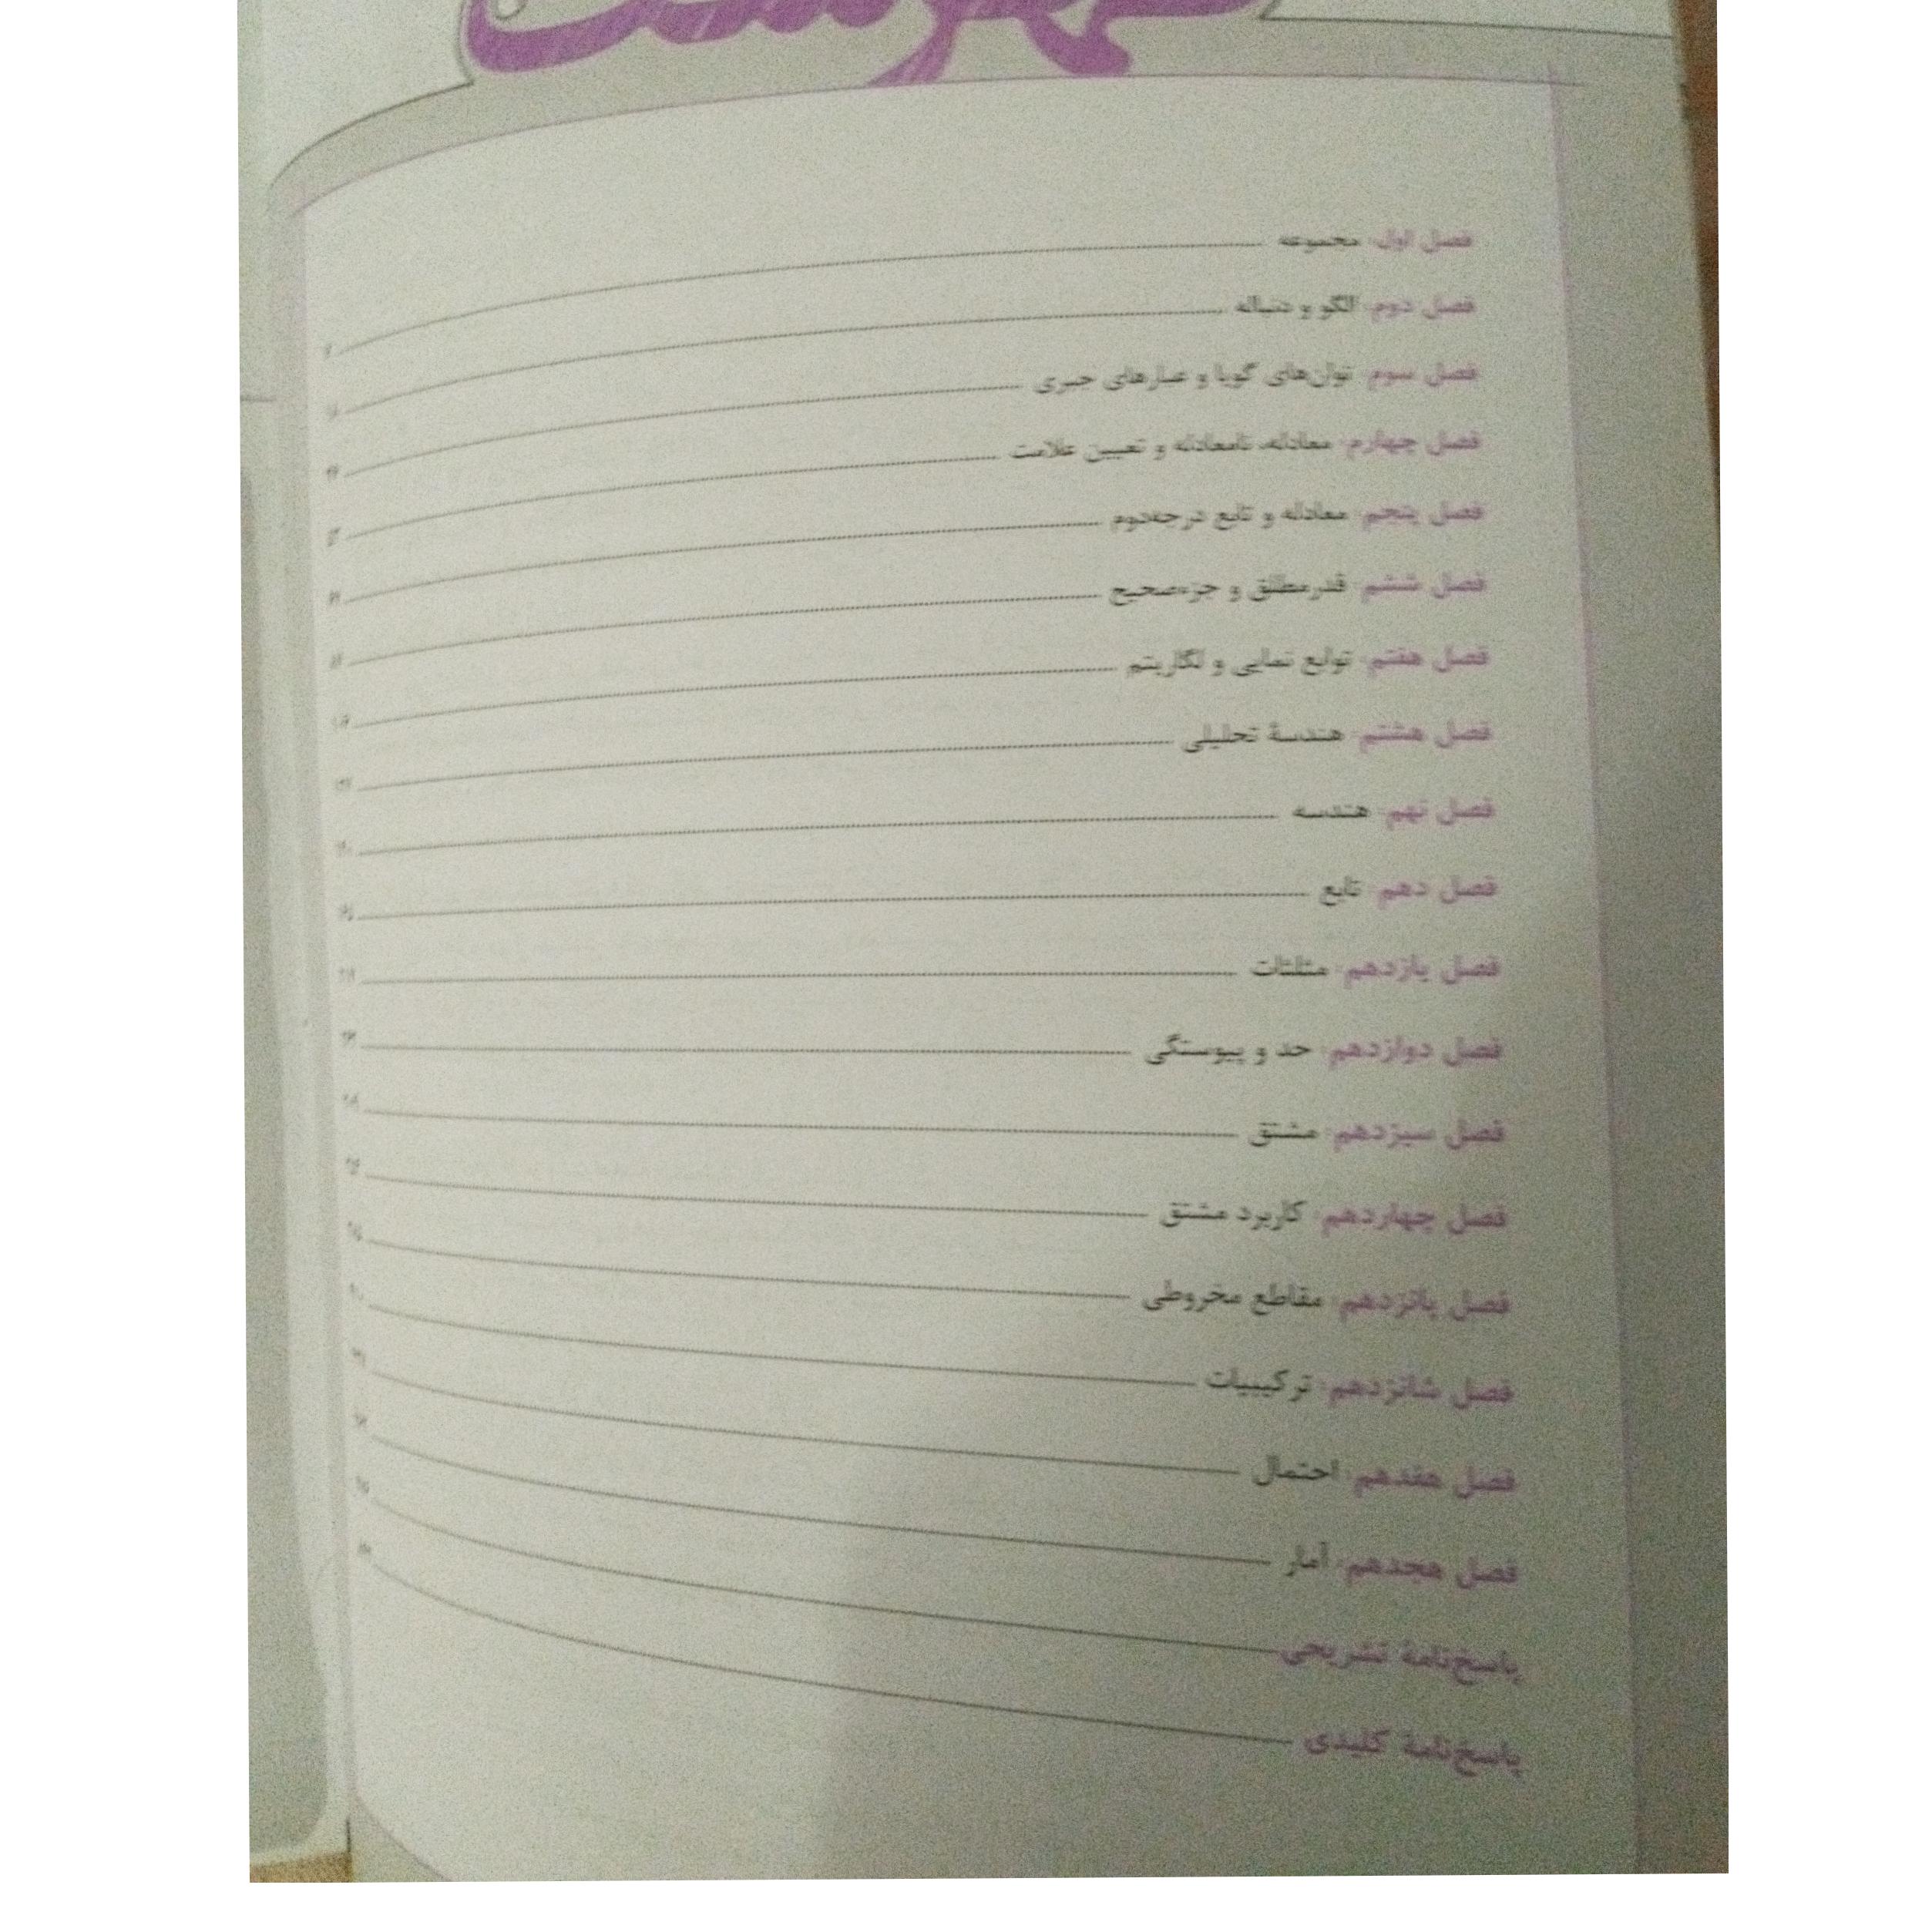 فهرست
فصل اول: مجموعه
فصل دوم: الگو و دنباله
فصل سوم: توان‌های گویا و عبارهای جبری
فصل چهارم: معادله، نامعادله و تعیین علامت
فصل پنجم: معادله و تابع درجه‌دوم
فصل ششم: قدرمطلق و جزءصحیح
فصل هفتم: توابع نمایی و لگاریتم
فصل هشتم: هندسهٔ تحلیلی
فصل نهم: هندسه
فصل دهم: تابع
فصل یازدهم: مثلثات
فصل دوازدهم: حد و پیوستگی
فصل سیزدهم: مشتق
فصل چهاردهم: کاربرد مشتق
فصل پانزدهم: مقاطع مخروطی
فصل شانزدهم: ترکیبیات
فصل هفدهم: احتمال
فصل هجدهم: آمار
پاسخ‌نامهٔ تشریحی
پاسخ‌نامهٔ کلیدی